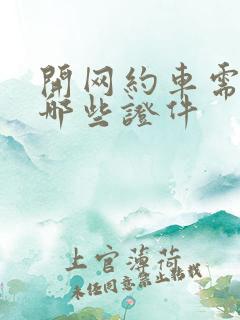 開网約車需
哪些證件
上官薄荷
未经同意禁止转载